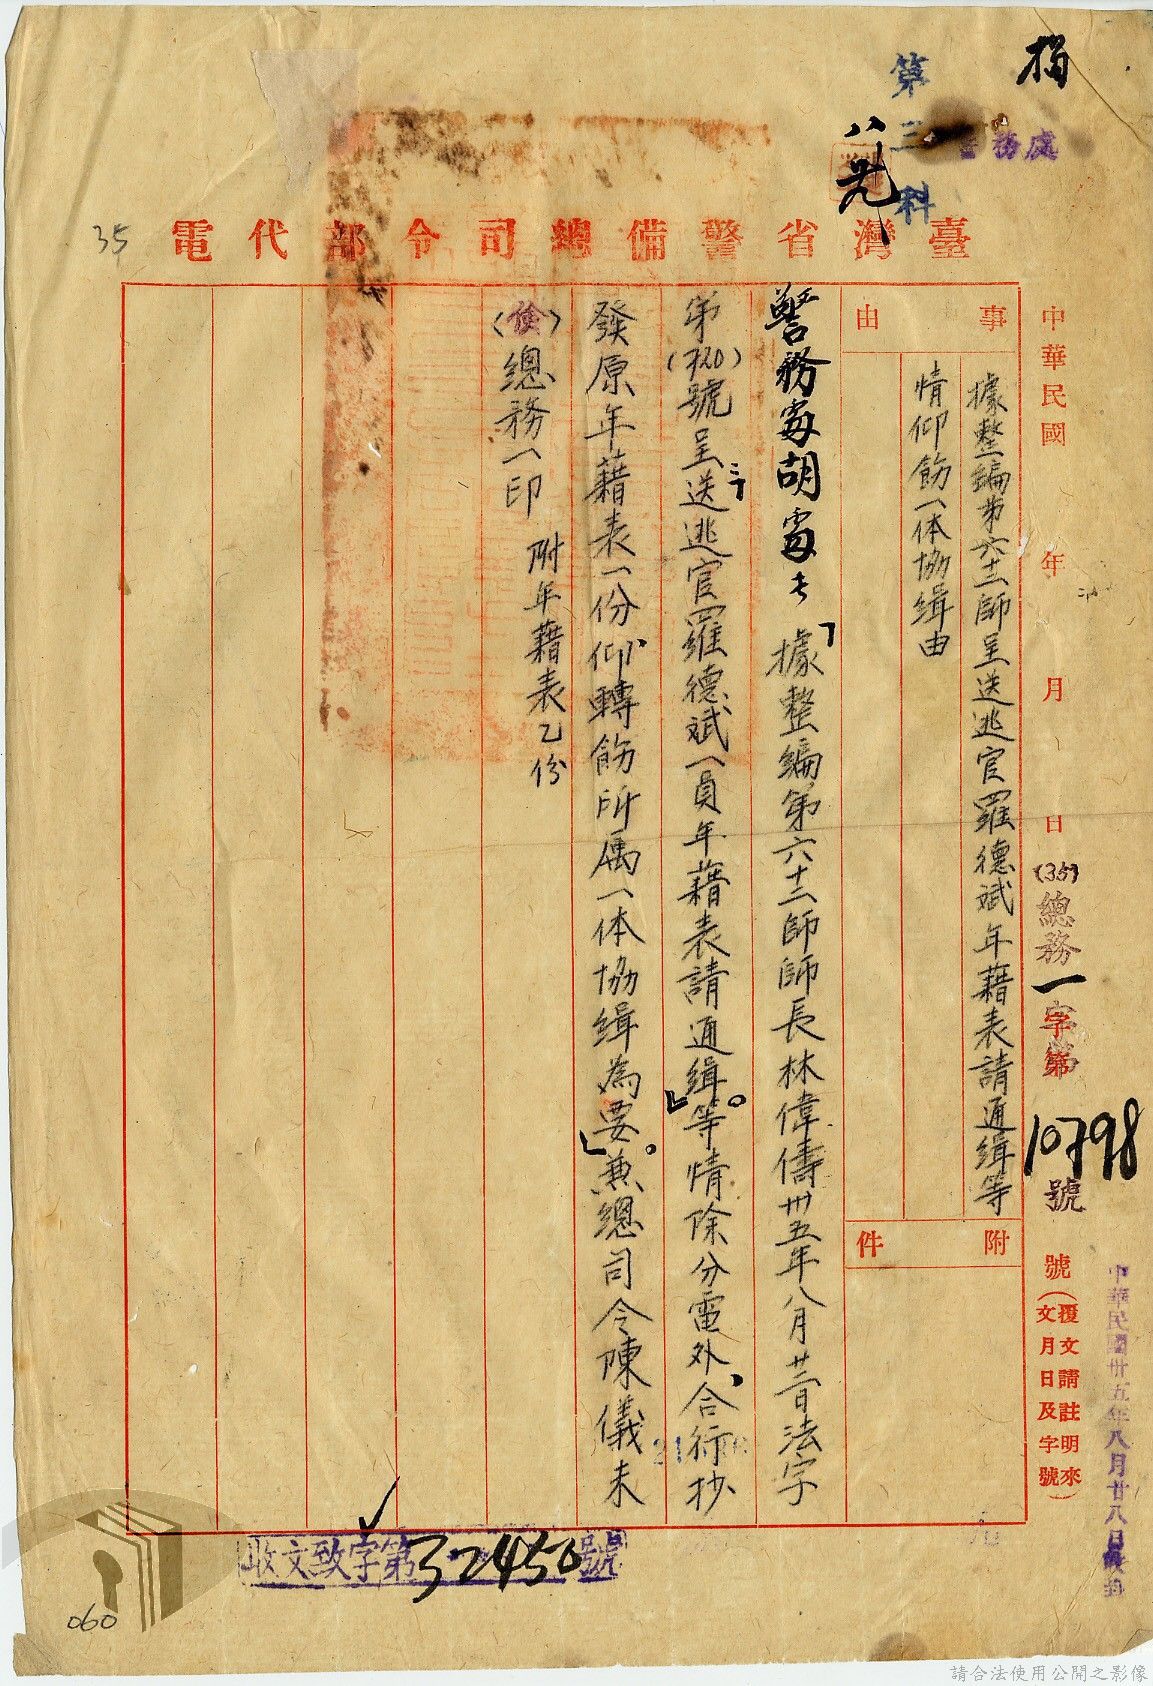 第三科
務處
八 光
35
臺灣省警備總司令部代電
中華民國 年 月 日
(35)總務一字第10798號
號(覆文請註明來文月日及字號)
中華民國卅五年八月廿八日
事由
據整編第六十二師呈送逃官羅德斌年藉表請通緝等
情仰飭一体協緝由
附件
警務處胡處長「據整編第六十二師師長林偉儔卅五年八月廿三日法字
第(720)號呈送逃官羅德斌一員年藉表請通緝等情除分電外合行抄
發原年藉表一份仰轉飭所屬一体協緝為要兼總司令陳儀未
(儉)總務一印 附年藉表乙份
收文致字第32450號
060
請合法使用公開之影像